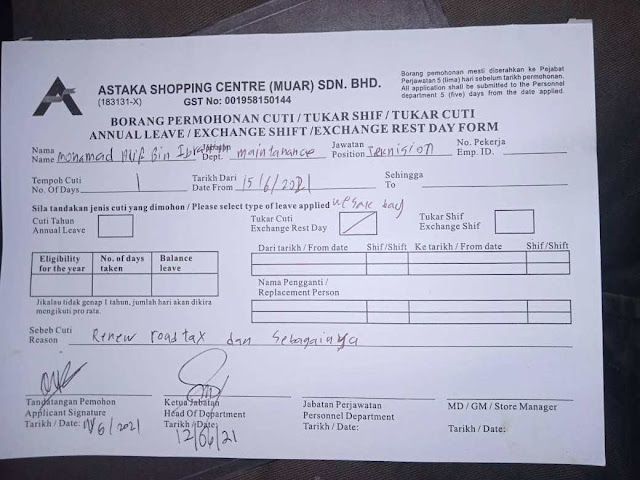 Borang pemohonan mesti diserahkan ke Pejabat
Perjawatan 5 (lima) hari sebelum tarikh permohonan.
All application shall be submitted to the Personnel
department 5 (five) days from the date applied.
ASTAKA SHOPPING CENTRE (MUAR) SDN. BHD.
(183131-X) GST No: 001958150144
BORANG PERMOHONAN CUTI / TUKAR SHIF / TUKAR CUTI
ANNUAL LEAVE / EXCHANGE SHIFT /EXCHANGE REST DAY FORM
Nama Jabatan Jawatan No. Pekerja
Name Mohamad Bin Dept. maintanance Position Teknision Emp. ID.
Tempoh Cuti Tarikh Dari Sehingga
No. Of Days 1 Date From 15/6/2021 To
Sila tandakan jenis cuti yang dimohon / Please select type of leave applied wesak day
Cuti Tahun Tukar Cuti Tukar Shif
Annual Leave Exchange Rest Day Exchange Shif
Eligibility for the year No. of days taken Balance leave
Dari tarikh / From date Shif/Shift Ke tarikh / From date Shif/Shift
Nama Pengganti /
Replacement Person
Jikalau tidak genap 1 tahun, jumlah hari akan dikira
mengikuti pro rata.
Sebeb Cuti
Reason Renew roadtax dan sebagainya
Tandatangan Pemohon Ketua Jabatan Jabatan Perjawatan MD / GM / Store Manager
Applicant Signature Head Of Department Personnel Department
Tarikh / Date: 6/2021 Tarikh / Date: Tarikh / Date: Tarikh / Date:
12/06/21